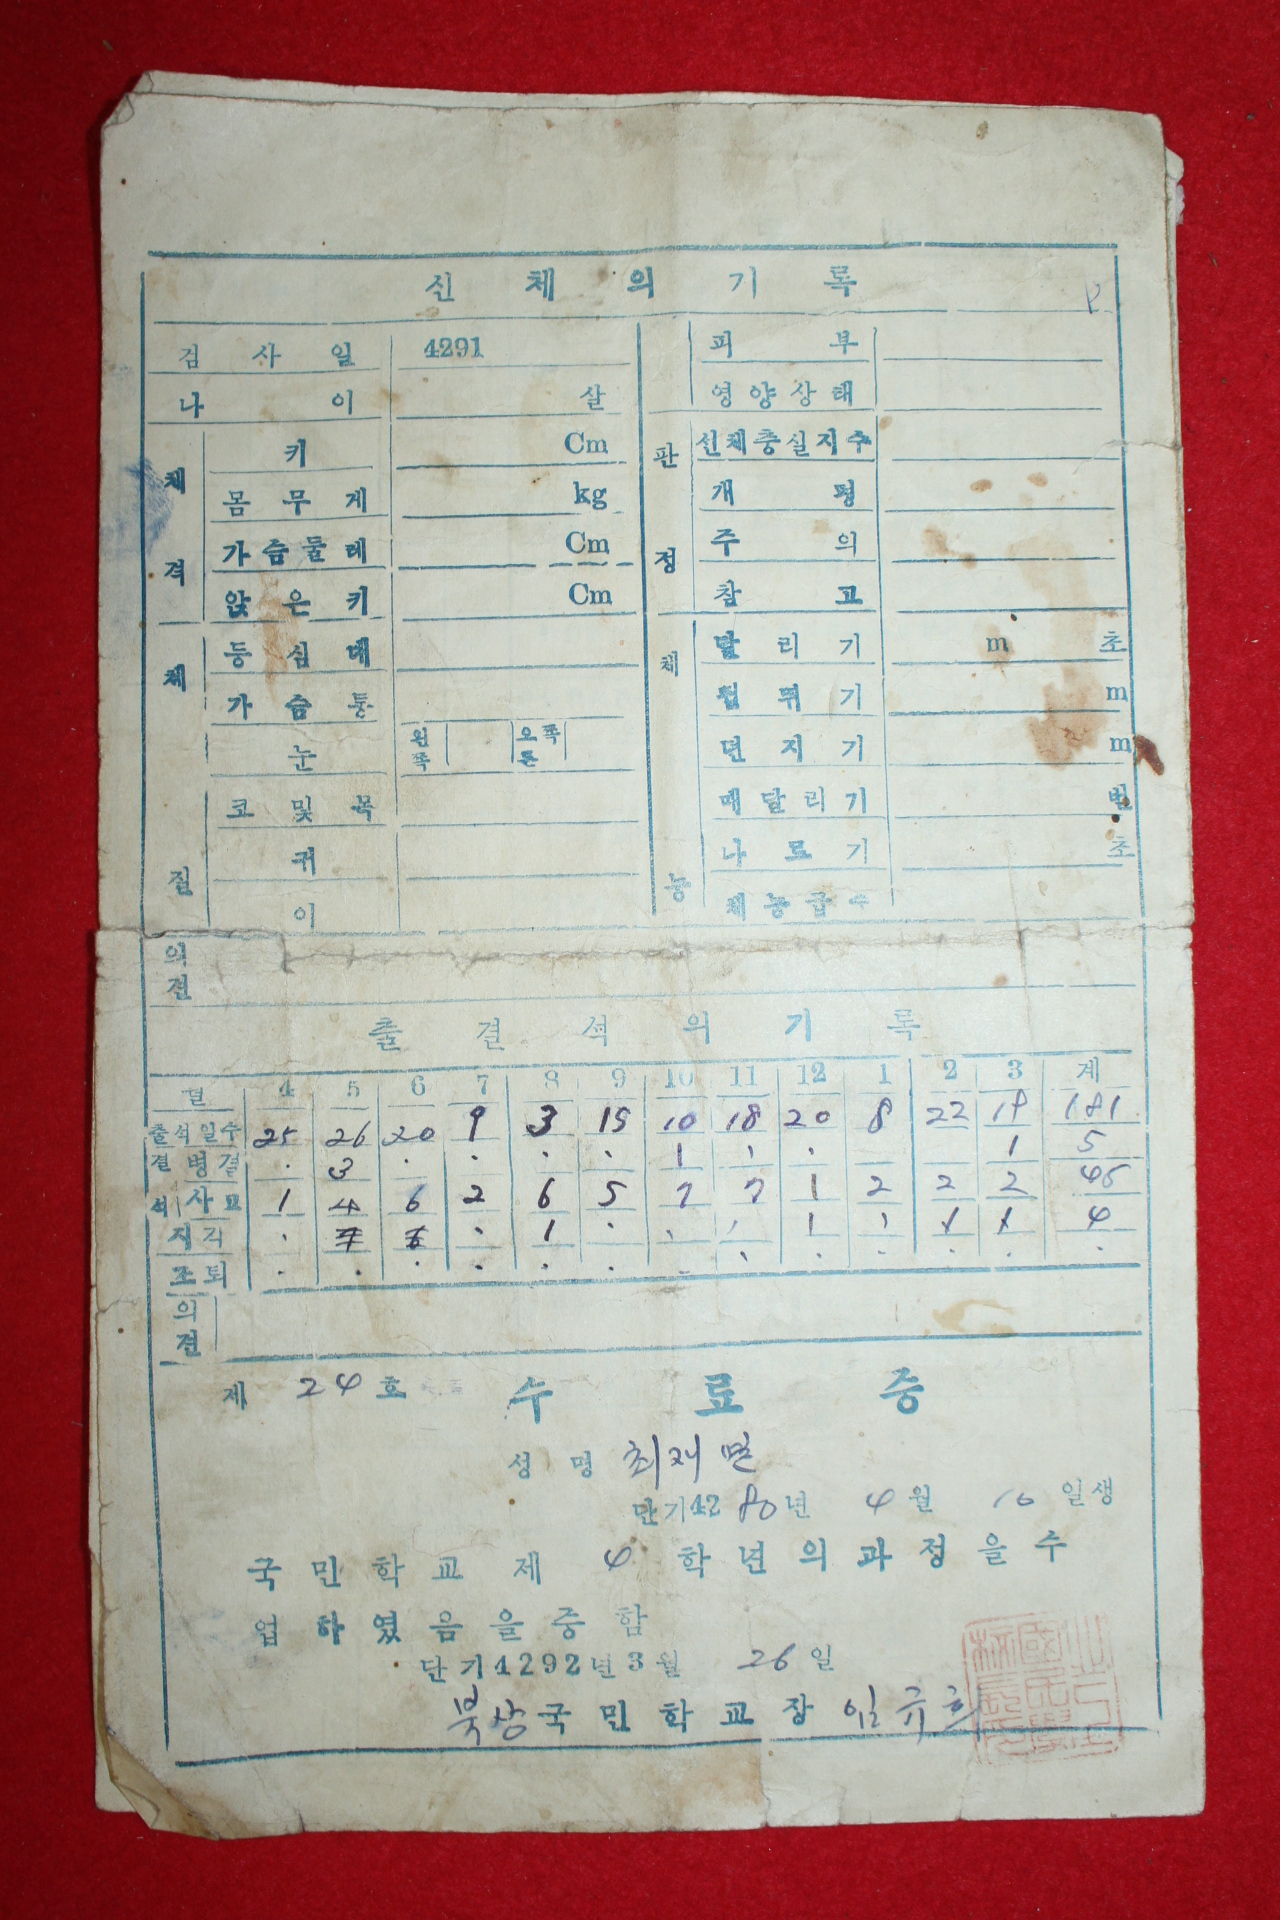 신체의기록
검사일 4291
나이 살
체격
키 Cm
몸무게 kg
가슴둘레 Cm
앉은키 Cm
체질
등심대
가슴통
눈 왼쪽 오른쪽
코및목
귀
이
판정
피부
영양상태
신체충실지수
개평
주의
참고
체능
달리기 m 초
넓뛰기 m
던지기 m
매달리기 번
나르기 초
체능급수
의견
출결석의기록
월 4 5 6 7 8 9 10 11 12 1 2 3 계
출석일수 25 26 20 9 3 19 10 18 20 8 22 19 181
결석 병결 · 3 · · · · 1 · · 1 5
사고 1 4 6 2 6 5 7 7 1 2 2 2 45
지각 · · 1 · · · 1 · 4
조퇴 · · · · · · · · · · · · ·
의견
제 24 호 수료증
성명 최재면
단기4280년 4월 10일생
국민학교제 4 학년의과정을수
업하였음을증함
단기4292년3월 26일
북상국민학교장 임규희